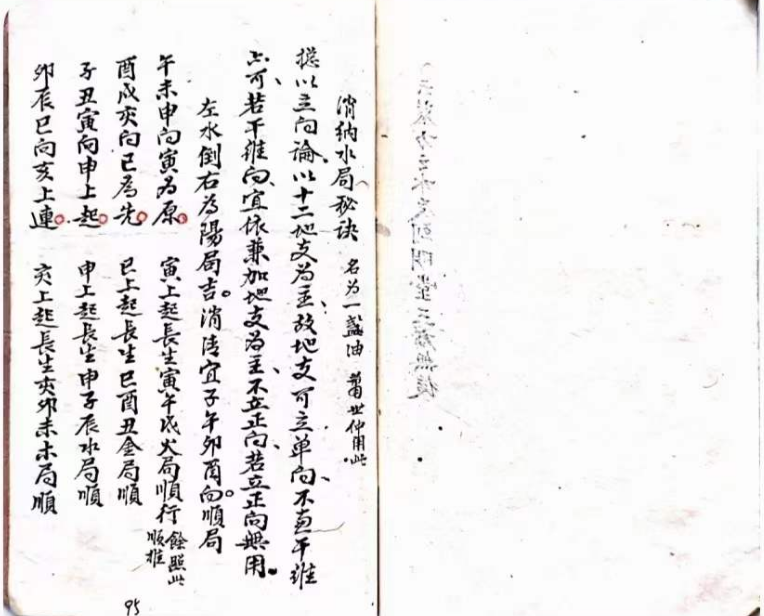 消納水局秘诀 名为一盞油 蕭世仲用此
揔以立向論、以十二地支为主、故地支可立单向、不宜干維
亦可若干維向、宜依兼加地支为主、不立正向、若立正向無用。
左水倒右为陽局吉。消清宜子午卯酉向。順局
午未申向寅为原。 寅上起長生寅午戌火局順行 餘照此順推
酉戌亥向巳為先。 巳上起長生巳酉丑金局順
子丑寅向申上起。 申上起長生申子辰水局順
卯辰巳向亥上連。 亥上起長生亥卯未木局順
95